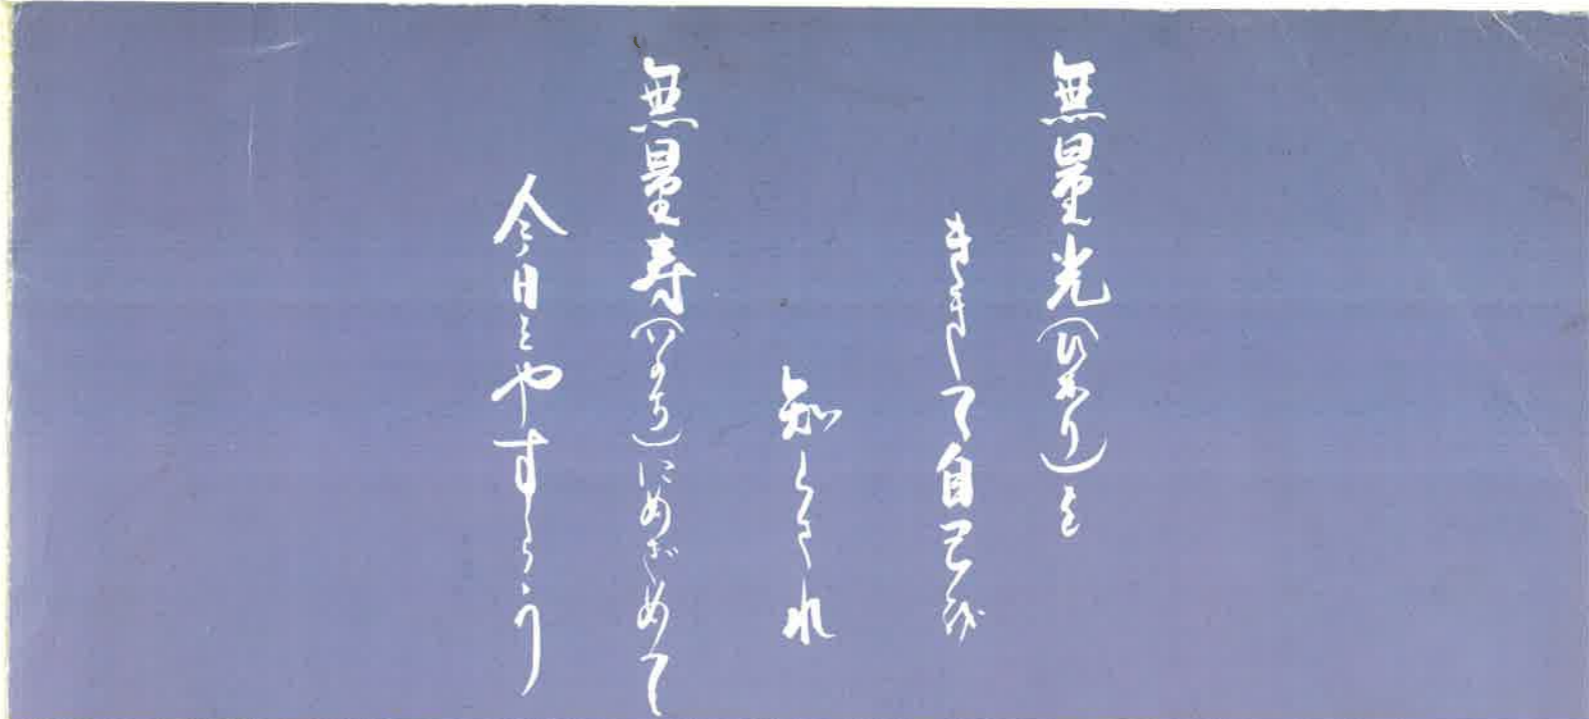 無量光(ひかり)を
自己が
知らされ
無量寿(いのち)にめざめて
今日をやすらう